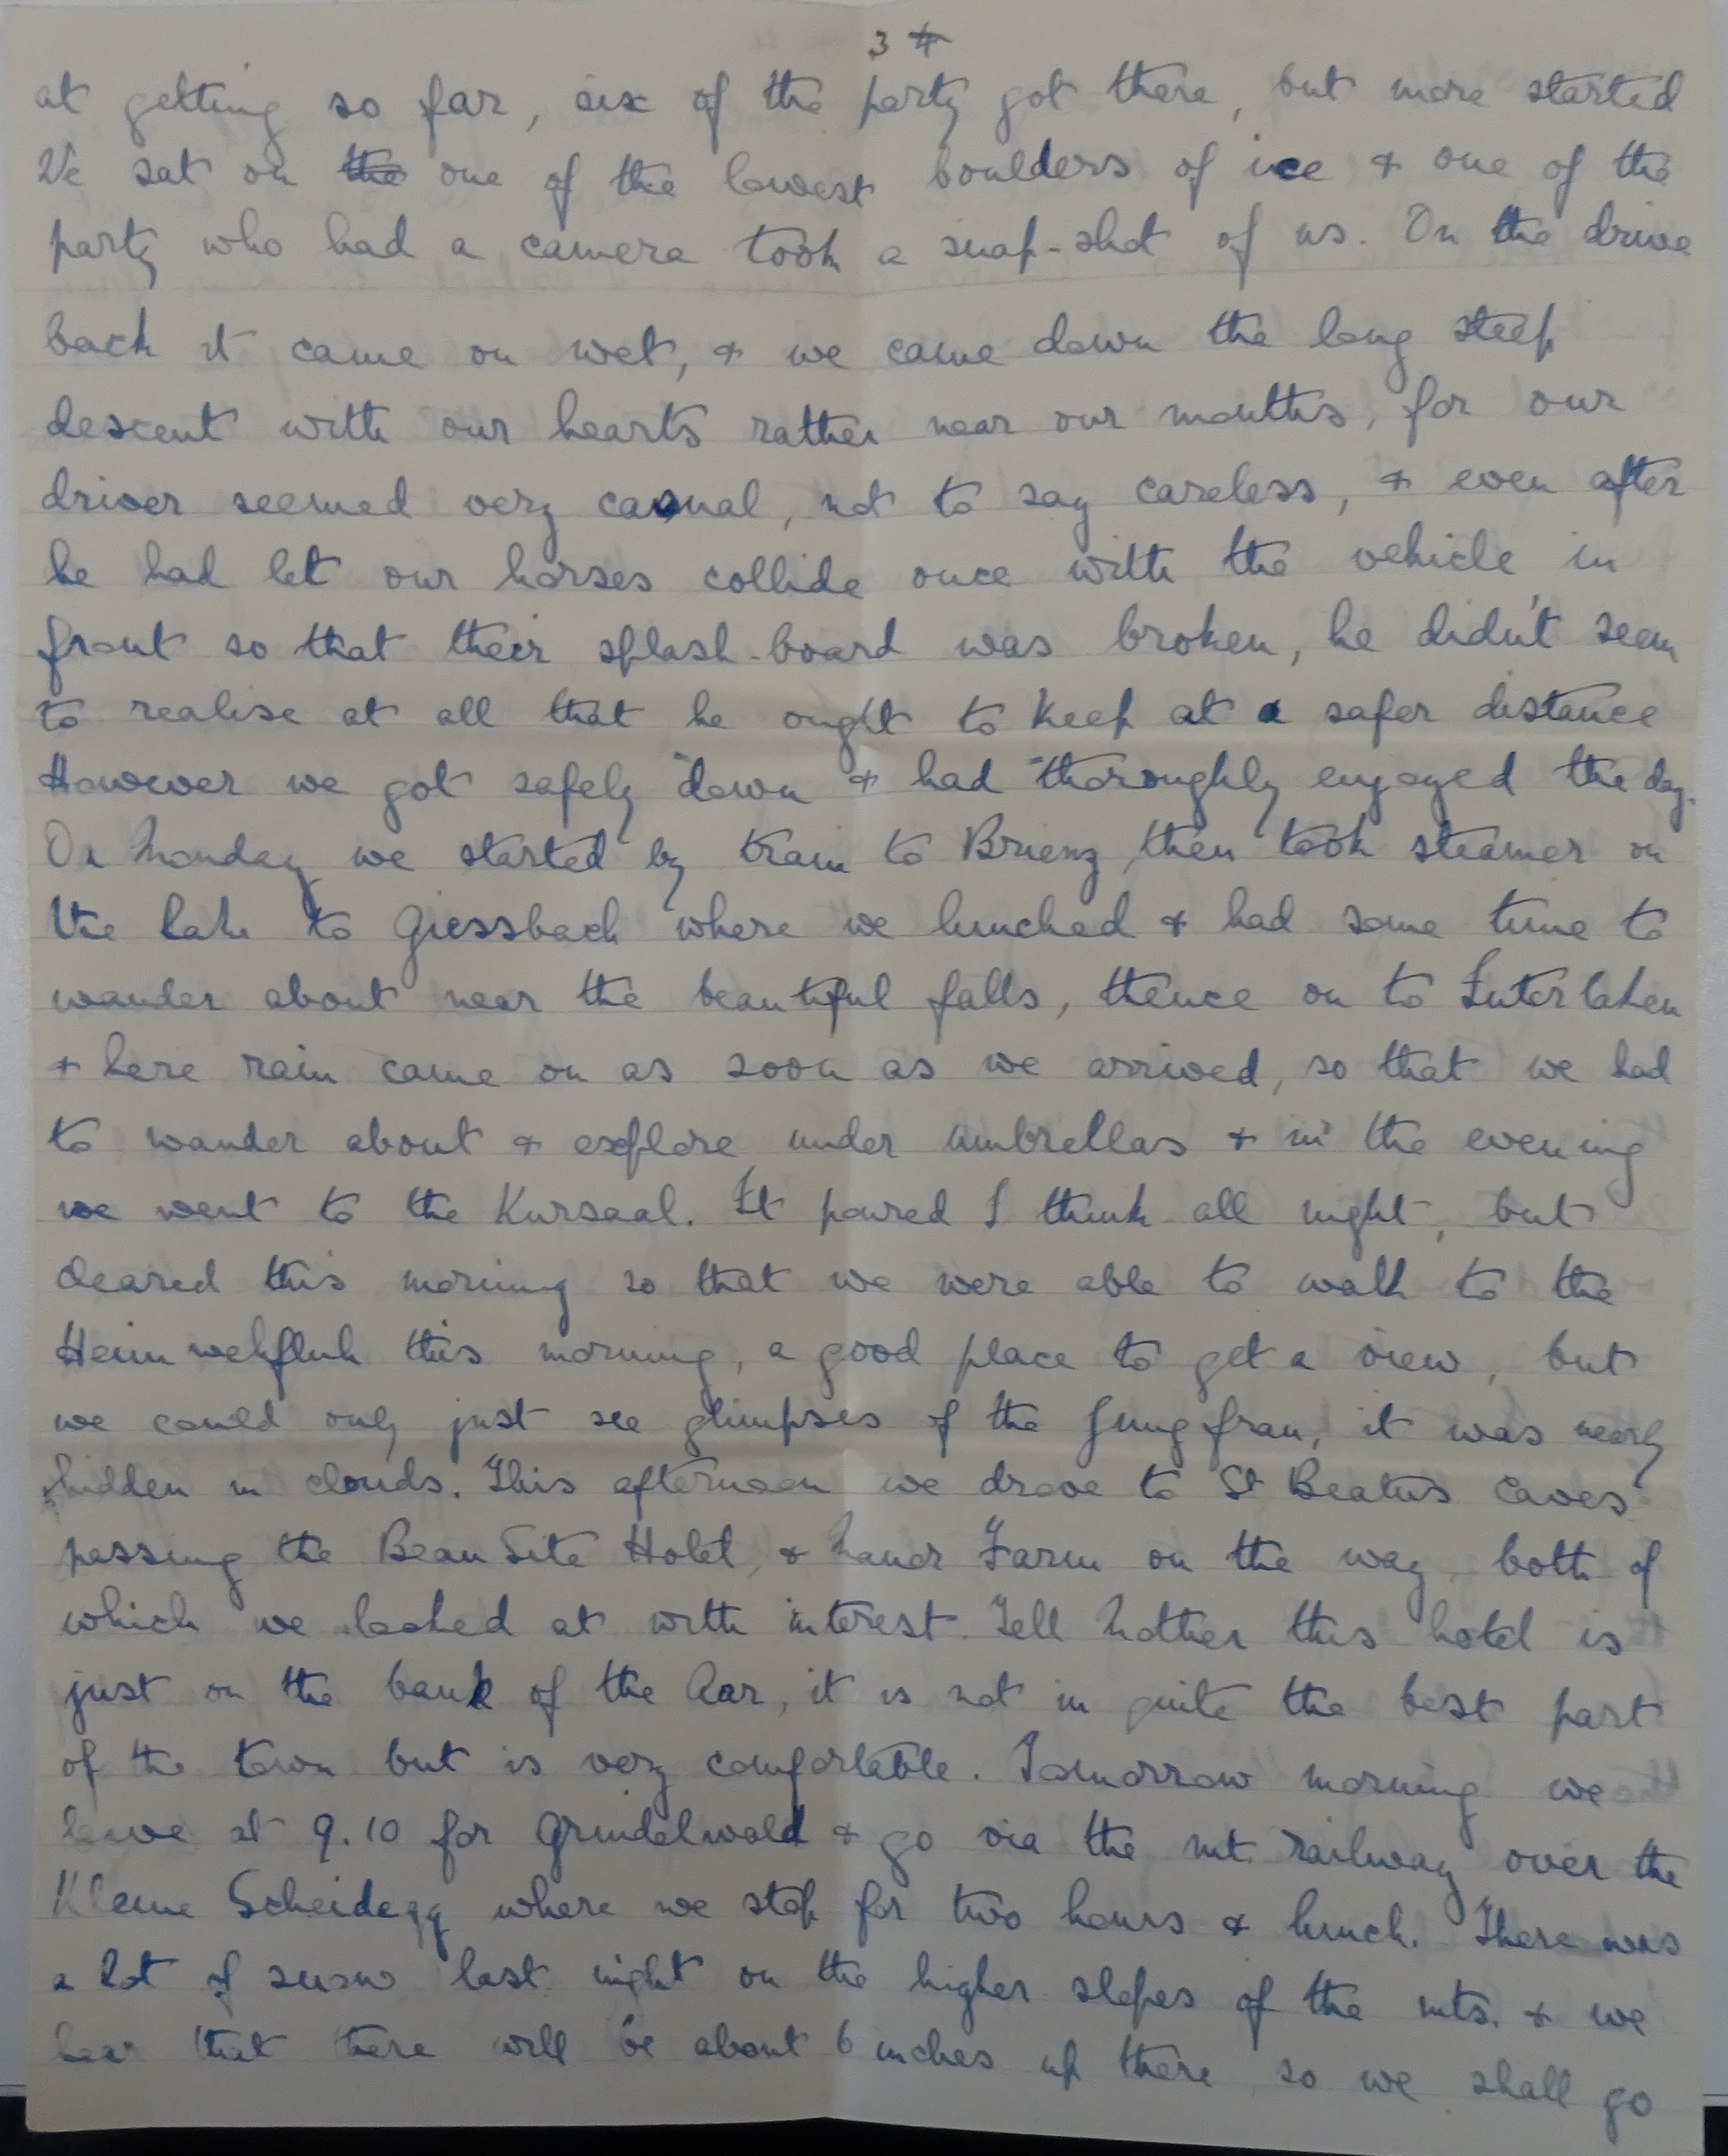 3 4
at getting so far, six of the party got there, but more started
We sat on the one of the lowest boulders of ice & one of the
party who had a camera took a snap-shot of us. On the drive
back it came on wet, & we came down the long steep
descent with our hearts rather near our mouths, for our
driver seemed very casual, not to say careless, & even after
he had let our horses collide once with the vehicle in
front so that their splash-board was broken, he didn't seem
to realise at all that he ought to keep at a safer distance
However we got safely down & had thoroughly enjoyed the day.
On Monday we started by train to Brienz, then took steamer on
the lake to Giessbach where we lunched & had some time to
wander about near the beautiful falls, thence on to Interlaken
& here rain came on as soon as we arrived, so that we had
to wander about & explore under umbrellas & in the evening
we went to the Kursaal. It poured I think all night, but
cleared this morning so that we were able to walk to the
Heimwehfluh this morning, a good place to get a view, but
we could only just see glimpses of the Jungfrau, it was nearly
hidden in clouds. This afternoon we drove to St Beatus Caves
passing the Beau Site Hotel, & Manor Farm on the way, both of
which we looked at with interest. Tell Mother this hotel is
just on the bank of the Aar, it is not in quite the best part
of the town but is very comfortable. Tomorrow morning we
leave at 9.10 for Grindelwald & go via the mt. railway over the
Kleine Scheidegg where we stop for two hours & lunch. There was
a lot of snow last night on the higher slopes of the mts. & we
hear that there will be about 6 inches up there so we shall go